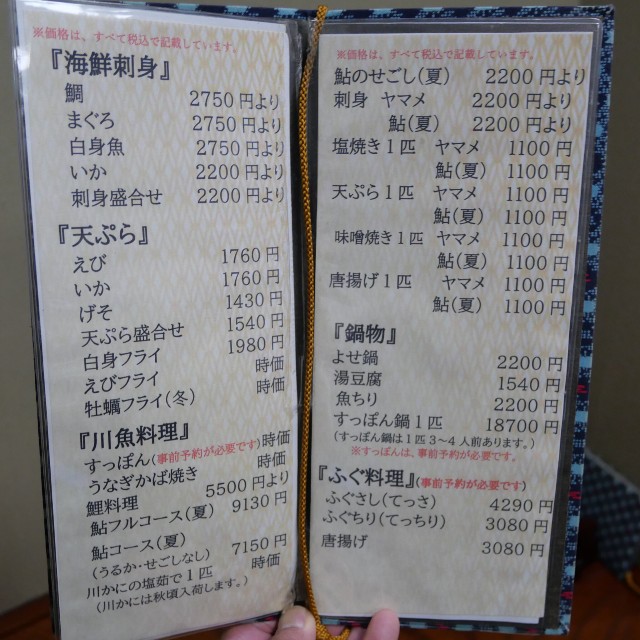 ※価格は、すべて税込で記載しています。
『海鮮刺身』
鯛 2750円より
まぐろ 2750円より
白身魚 2750円より
いか 2200円より
刺身盛合せ 2200円より
『天ぷら』
えび 1760円
いか 1760円
げそ 1430円
天ぷら盛合せ 1540円
白身フライ 1980円
えびフライ 時価
牡蠣フライ(冬) 時価
『川魚料理』
すっぽん(事前予約が必要です) 時価
うなぎかば焼き 時価
鯉料理 5500円より
鮎フルコース(夏) 9130円
鮎コース(夏)
(うるか・せごしなし) 7150円
川かにの塩茹で1匹 時価
(川かには秋頃入荷します。)
※価格は、すべて税込で記載しています。
鮎のせごし(夏) 2200円より
刺身 ヤマメ 2200円より
鮎(夏) 2200円より
塩焼き1匹 ヤマメ 1100円
鮎(夏) 1100円
天ぷら1匹 ヤマメ 1100円
鮎(夏) 1100円
味噌焼き1匹 ヤマメ 1100円
鮎(夏) 1100円
唐揚げ1匹 ヤマメ 1100円
鮎(夏) 1100円
『鍋物』
よせ鍋 2200円
湯豆腐 1540円
魚ちり 2200円
すっぽん鍋1匹 18700円
(すっぽん鍋は1匹3~4人前あります。)
※すっぽんは、事前予約が必要です。
『ふぐ料理』(事前予約が必要です)
ふぐさし(てっさ) 4290円
ふぐちり(てっちり) 3080円
唐揚げ 3080円